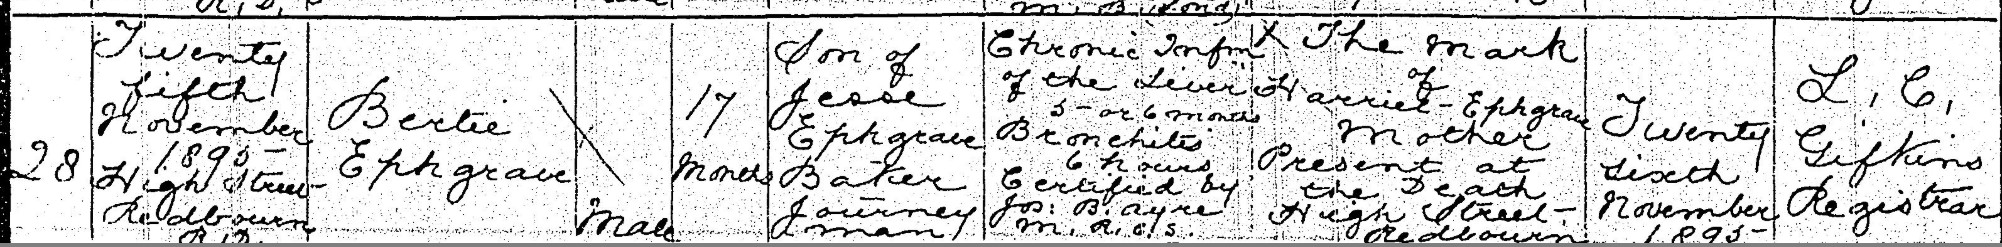 28
Twenty
fifth
November
1895
High Street
Redbourn
R.D.
Bertie
Ephgrave
Male
17
Months
Son of
Jesse
Ephgrave
Baker
Journey
man
Chronic Infm
of the Liver
5 or 6 months
Bronchitis
6 hours
Certified by
Jas. B. Ayre
M.R.C.S.
X The mark
of
Harriet Ephgrave
Mother
Present at
the Death
High Street
Redbourn
Twenty
sixth
November
1895
L. C.
Gifkins
Registrar